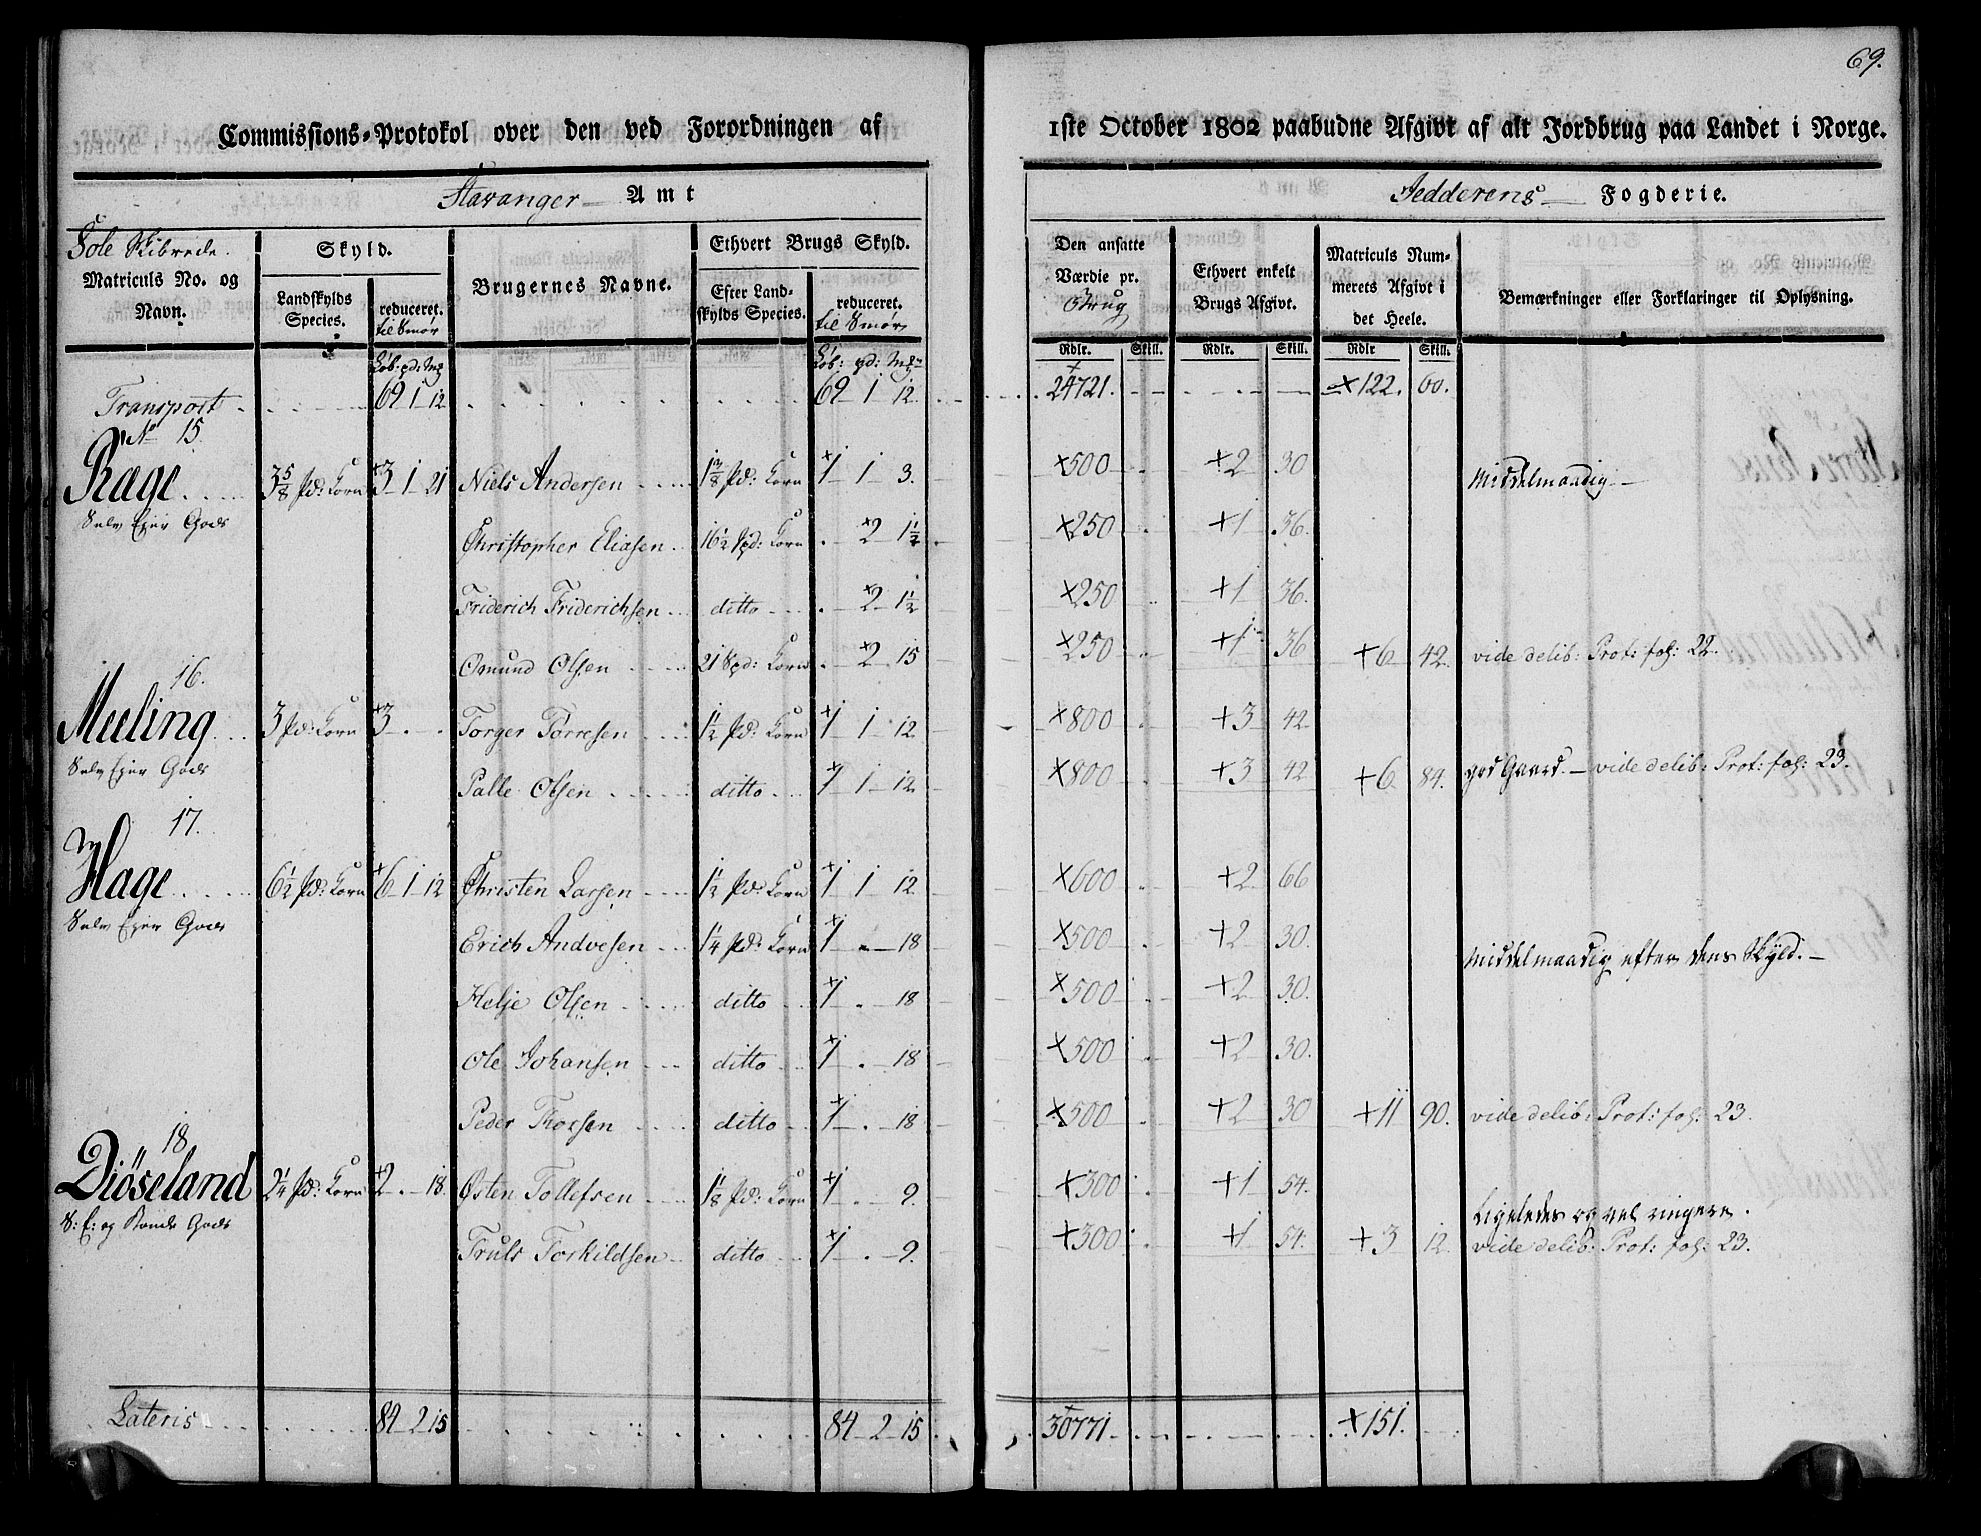 69.
Commissions-Protokol over den ved Forordningen af 1ste October 1802 paabudne Afgivt af alt Jordbrug paa Landet i Norge.
Stavanger Amt Jedderens Fogderie.
Sole Skibrede.
Matriculs No. og Navn.
Skyld.
Landskylds Species.
reduceret. til Smør
Brugernes Navne.
Ethvert Brugs Skyld.
Efter Landskylds Species.
reduceret. til Smør
Den ansatte Værdie pr. Brug
Ethvert enkelt Brugs Afgivt.
Matriculs Nummerets Afgivt i det Heele.
Bemærkninger eller Forklaringer til Oplysning.
Löb: pd: Mk Löb: pd: Mk Rdlr. Skill. Rdlr. Skill. Rdlr Skill.
Transport 69 1 12 69 1 12 24721. ×122. 60.
No 15.
Rage 3 5/8 Pd: Korn 3 1 21 Niels Andersen 1 3/8 Pd: Korn 1 1 3. ×500 +2 30 Middelmaadig
Selv Eier Gods
Christopher Eliasen 16 1/2 Spd: Korn 2 1 1/2 ×250 +1 36.
Friderich Friderichsen ditto 2 1 1/2 ×250 +1 36.
Osmund Olsen 21 Spd: Korn 2 15 ×250 +1 36 +6 42. vide delib: Prot: fol: 22.
16.
Meling 3 Pd: Korn 3 Torger Torresen 1 1/2 Pd: Korn 1 1 12 ×800 +3 42
Selv Eier Gods
Palle Olsen ditto 1 1 12 ×800 +3 42 +6 84. god Gaard. vide delib: Prot: fol: 23.
17.
Hage 6 1/2 Pd: Korn 6 1 12 Christen Larsen 1 1/2 Pd: Korn 1 1 12 ×600 +2 66
Selv Eier Gods
Erich Andvesen 1 1/4 Pd: Korn 1 18 ×500 +2 30. Middelmaadig efter dens Skyld.
Helje Olsen ditto 1 18 ×500 +2 30.
Ole Johansen ditto 1 18 ×500 +2 30.
Peder Thorsen ditto 1 18 ×500 +2 30 +11 90. vide delib: Prot: fol: 23.
18
Diöseland 2 1/4 Pd: Korn 2 18 Østen Tollefsen 1 1/8 Pd: Korn 1 9. +300 +1 54. Ligeledes og vel ringere.
S: E: og Bonde Gods
Truls Torkildsen ditto 1 9. +300 +1 54. +3 12. vide delib: Prot: fol: 23.
Lateris 84 2 15 84 2 15 30771 ×151.